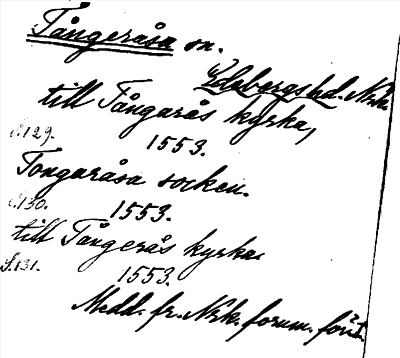 Tångeråsa sn.
Edsbergs hd. Nrk.
till Tångarås kyrka,
s.129.
1553.
Tongaråsa socken.
s.130.
1553.
till Tångerås kyrka
s.131.
1553.
Medd. fr. Nrk. fornm. före.